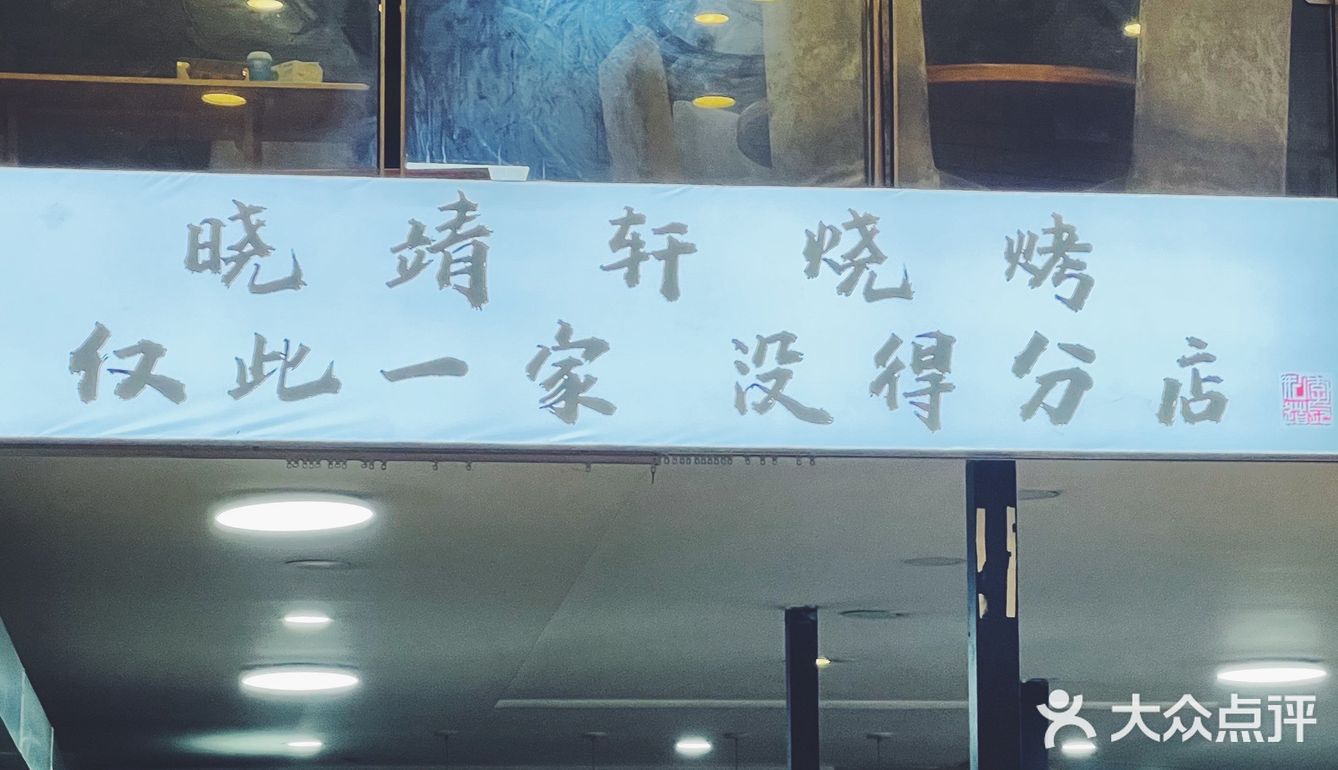 晓靖轩烧烤
仅此一家 没得分店
大众点评